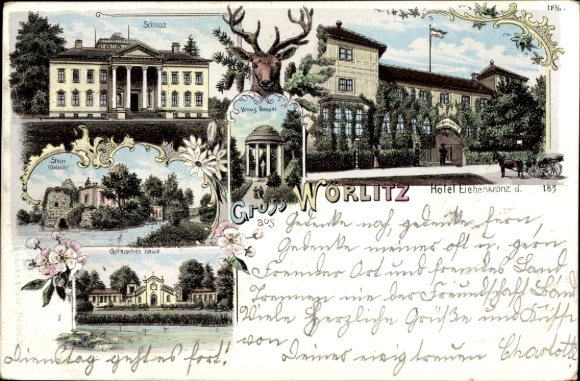 1196.
Schloss
Venus Tempel
Stein
Gothisches Haus
Gruss
aus
WÖRLITZ
Hotel Eichenkranz d.
189
Gedenke nah, gedenke fern,
Gedenke meiner oft u. gern
Fremder Ort und fremdes Land
Trennen nie der Freundschaft Band
Viele Herzliche Grüße und Küsse
von
Deines ewig treuen Charlott
Dienstag geht es fort!